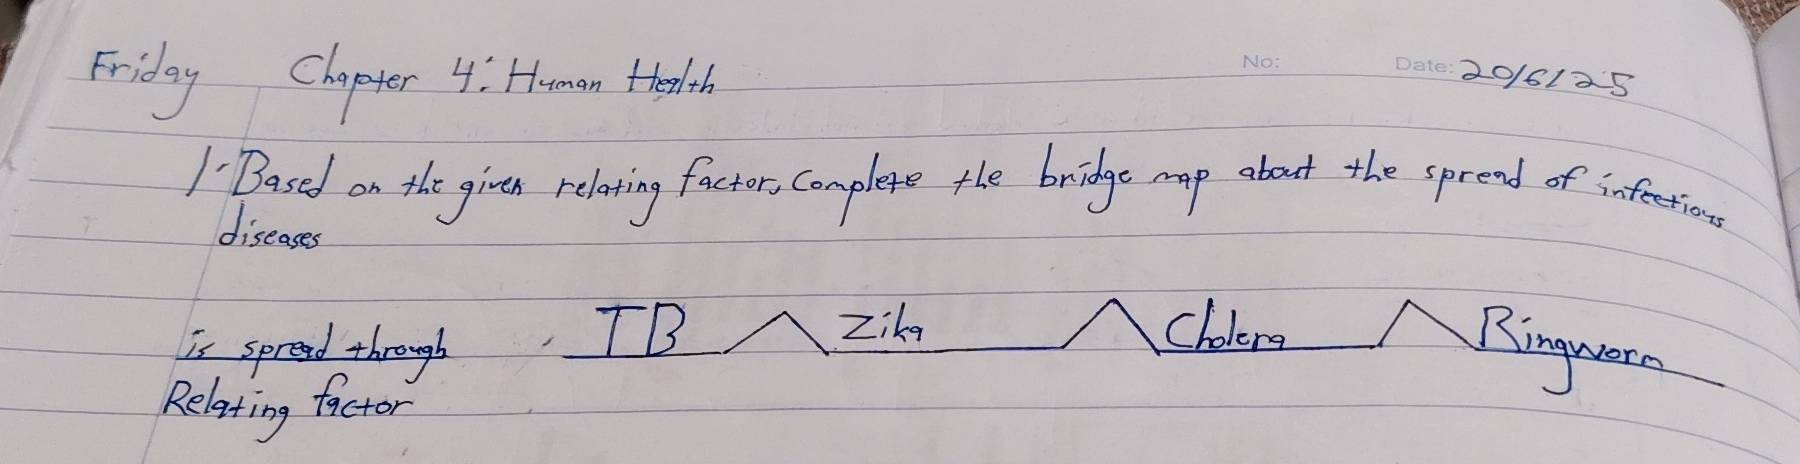 Friday Chapter 4: Human Health No: Date: 20/6/25
1. Based on the given relating factor, Complete the bridge map about the spread of infectious
diseases
is spread through TB Zika Cholera Ringworm
Relating factor